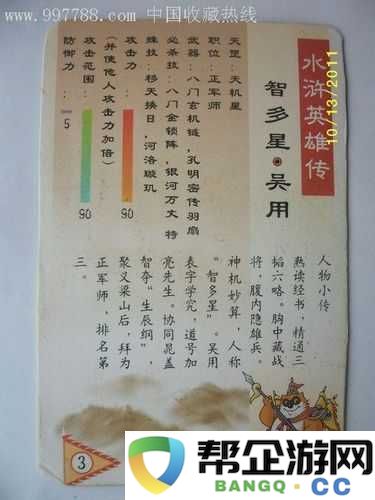 www.997788.com 中国收藏热线
水浒英雄传
10/13/2011
智多星●吴用
天罡：天机星
职位：正军师
武器：八门玄机链，孔明密传羽扇
必杀技：八门金锁阵，银河万丈 特
殊技：移天换日，河洛璇玑
攻击力： 90
（并使他人攻击力加倍）
攻击范围： 90
防御力： 5
人物小传
熟读经书，精通三
韬六略。胸中藏战
将，腹内隐雄兵。
神机妙算，人称
“智多星”。吴用
表字学究，道号加
亮先生。协同晁盖
智夺“生辰纲”，
聚义梁山后，拜为
正军师，排名第
三。
3
帮企游网
BANGQ·CC